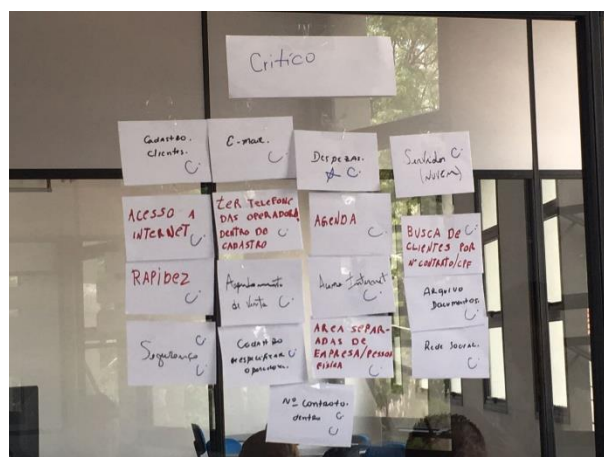 Critico
Cadastro.
Clientes.
C.
E-mail.
C.
Despezas.
C.
Servidor C.
(Nuvem)
ACESSO A
INTERNET C.
TER TELEFONE
DAS OPERADORA
DENTRO DO C.
CADASTRO
AGENDA
C.
BUSCA DE
CLIENTES POR
Nº CONTRATO/CPF
RAPIDEZ
C.
de Venta C.
Internet
C.
Arquivo
Documentos.
C.
Segurança
C.
Cadastro
C.
AREA SEPAR-
ADAS DE
EMPRESA/PESSOA
FISICA C.
Rede Social.
C.
Nº Contrato.
dentro C.
C.